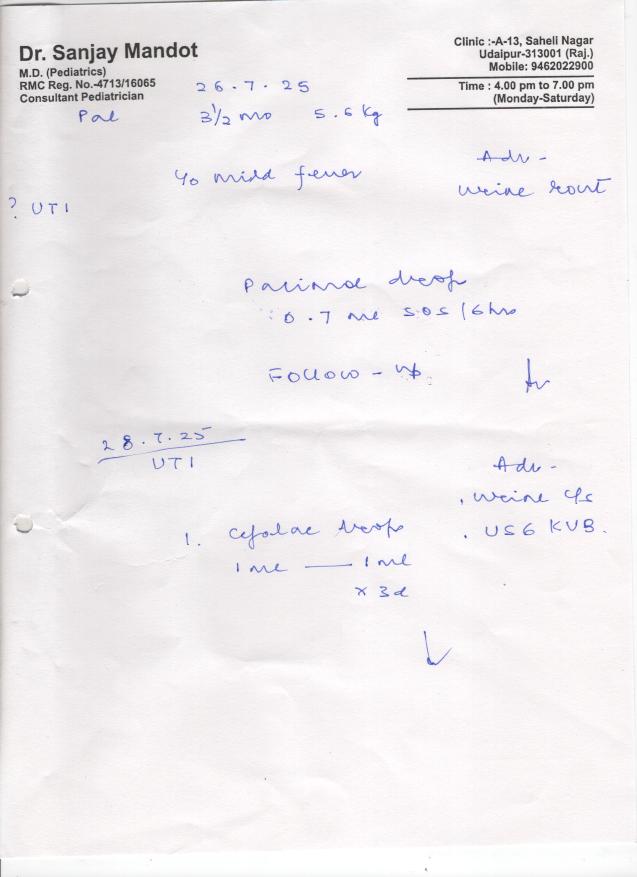 Dr. Sanjay Mandot
M.D. (Pediatrics)
RMC Reg. No.-4713/16065
Consultant Pediatrician
Clinic :-A-13, Saheli Nagar
Udaipur-313001 (Raj.)
Mobile: 9462022900
Time : 4.00 pm to 7.00 pm
(Monday-Saturday)
26.7.25
Pal 3 1/2 mo 5.6 kg
c/o mild fever
Adv -
urine rout
? UTI
drop
0.7 ml SOS / 6 hrs
Follow - up
28.7.25
UTI
Adv -
. urine c/s
. USG KUB.
1. drops
1 ml — 1 ml
x 3d